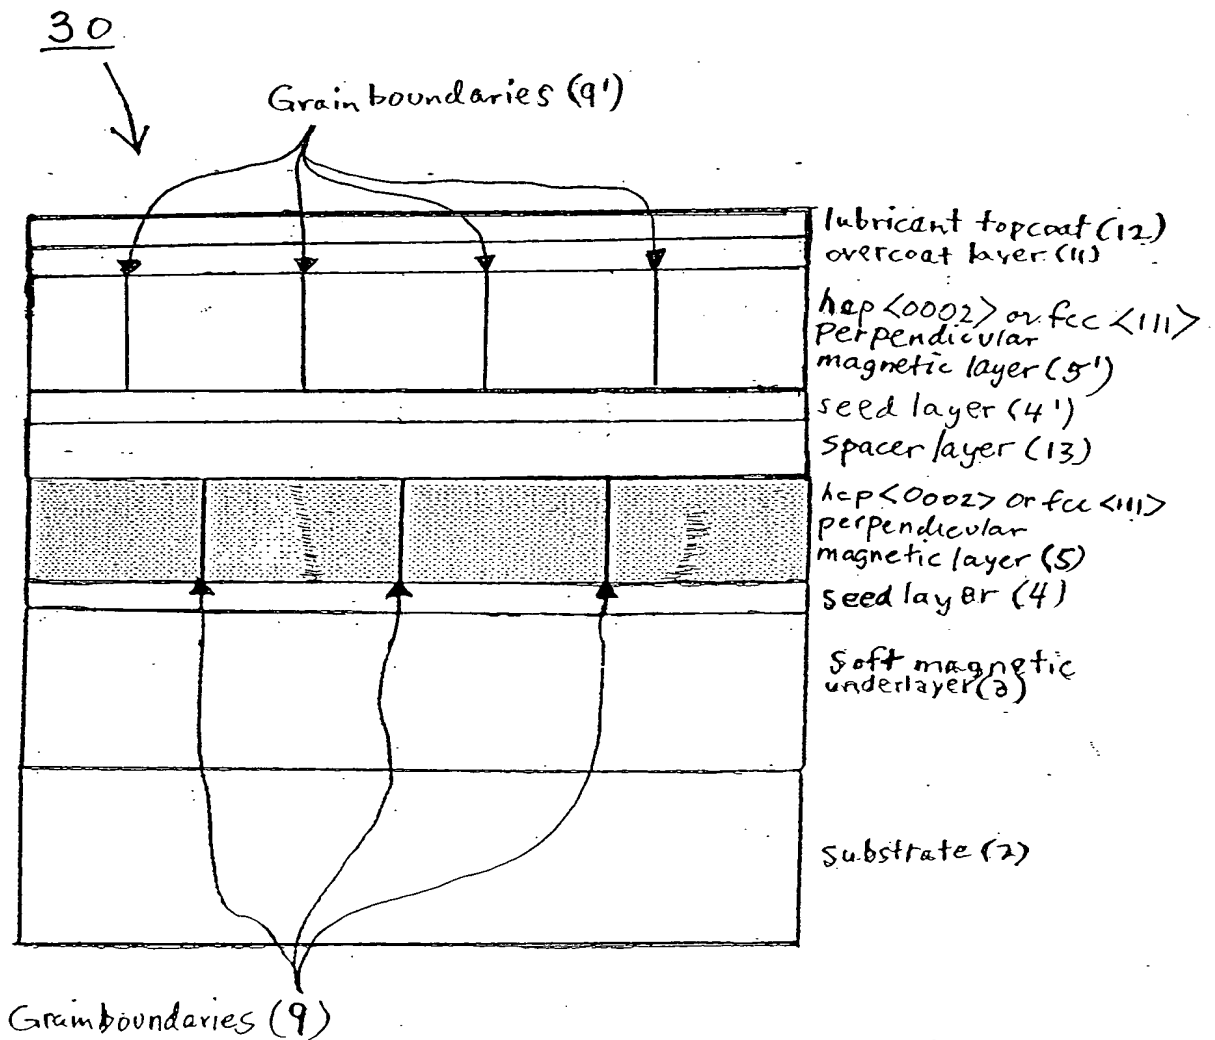 30
Grain boundaries (9')
lubricant topcoat (12)
overcoat layer (11)
hcp <0002> or fcc <111>
perpendicular
magnetic layer (5')
seed layer (4')
spacer layer (13)
hcp <0002> or fcc <111>
perpendicular
magnetic layer (5)
seed layer (4)
Soft magnetic
underlayer (3)
substrate (2)
Grain boundaries (9)